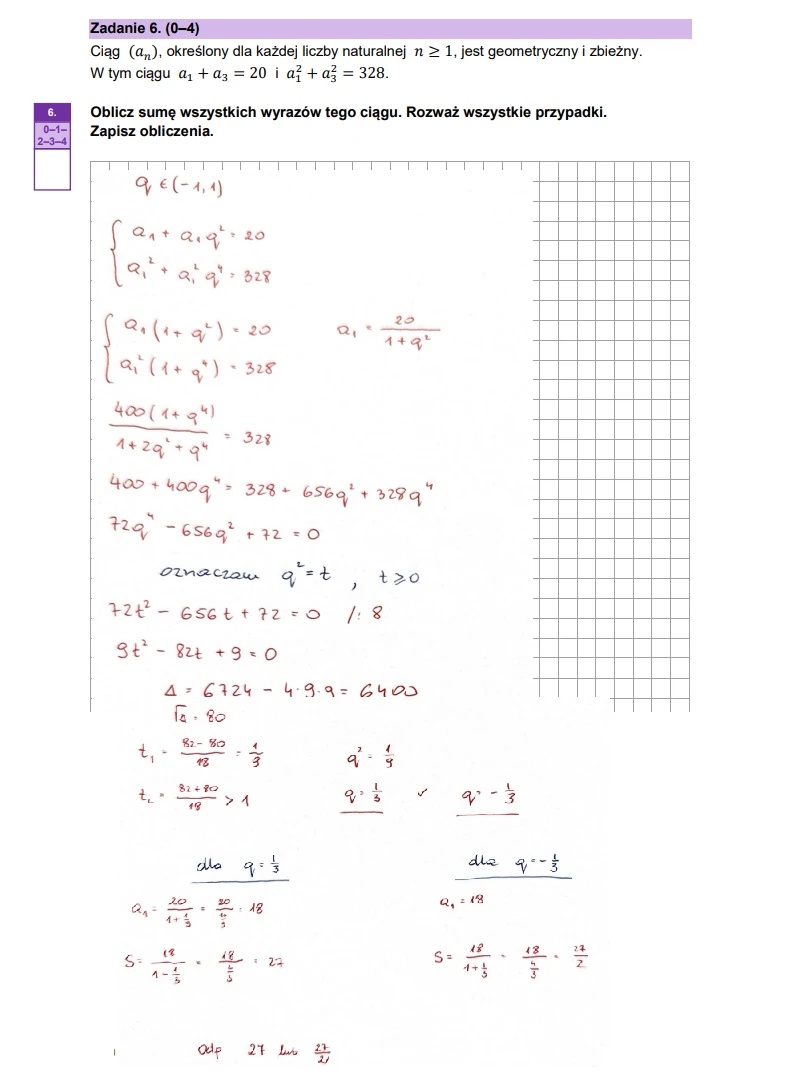 Zadanie 6. (0–4)
Ciąg (aₙ), określony dla każdej liczby naturalnej n ≥ 1, jest geometryczny i zbieżny.
W tym ciągu a₁ + a₃ = 20 i a₁² + a₃² = 328.
6.
0–1–
2–3–4
Oblicz sumę wszystkich wyrazów tego ciągu. Rozważ wszystkie przypadki.
Zapisz obliczenia.
q ∈ (-1, 1)
a₁ + a₁q² = 20
a₁² + a₁²q⁴ = 328
a₁(1 + q²) = 20 a₁ = 20/(1+q²)
a₁²(1 + q⁴) = 328
400(1 + q⁴)/(1 + 2q² + q⁴) = 328
400 + 400q⁴ = 328 + 656q² + 328q⁴
72q⁴ - 656q² + 72 = 0
oznaczam q² = t , t ⩾ 0
72t² - 656t + 72 = 0 /: 8
9t² - 82t + 9 = 0
Δ = 6724 - 4·9·9 = 6400
√Δ = 80
t₁ = (82-80)/18 = 1/9 q² = 1/9
t₂ = (82+80)/18 > 1 q = 1/3 ✓ q = -1/3
dla q = 1/3 dla q = -1/3
a₁ = 20/(1+1/9) = 20/(10/9) = 18 a₁ = 18
S = 18/(1-1/3) = 18/(2/3) = 27 S = 18/(1+1/3) = 18/(4/3) = 27/2
Odp 27 lub 27/2